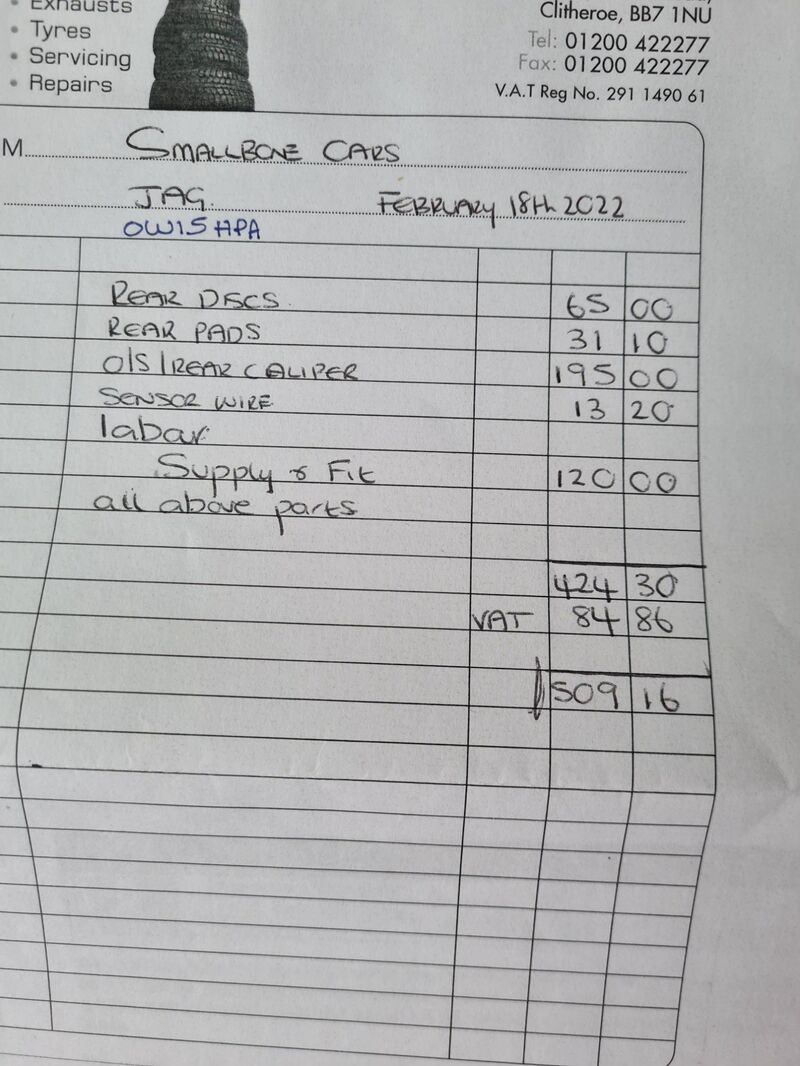 • Exhausts
• Tyres
• Servicing
• Repairs
Clitheroe, BB7 1NU
Tel: 01200 422277
Fax: 01200 422277
V.A.T Reg No. 291 1490 61
M SMALLBONE CARS
JAG. FEBRUARY 18th 2022
OW15 HPA
REAR DISCS 65 00
REAR PADS 31 10
O/S/REAR CALIPER 195 00
SENSOR WIRE 13 20
labar
Supply & Fit 120 00
all above parts
424 30
VAT 84 86
509 16